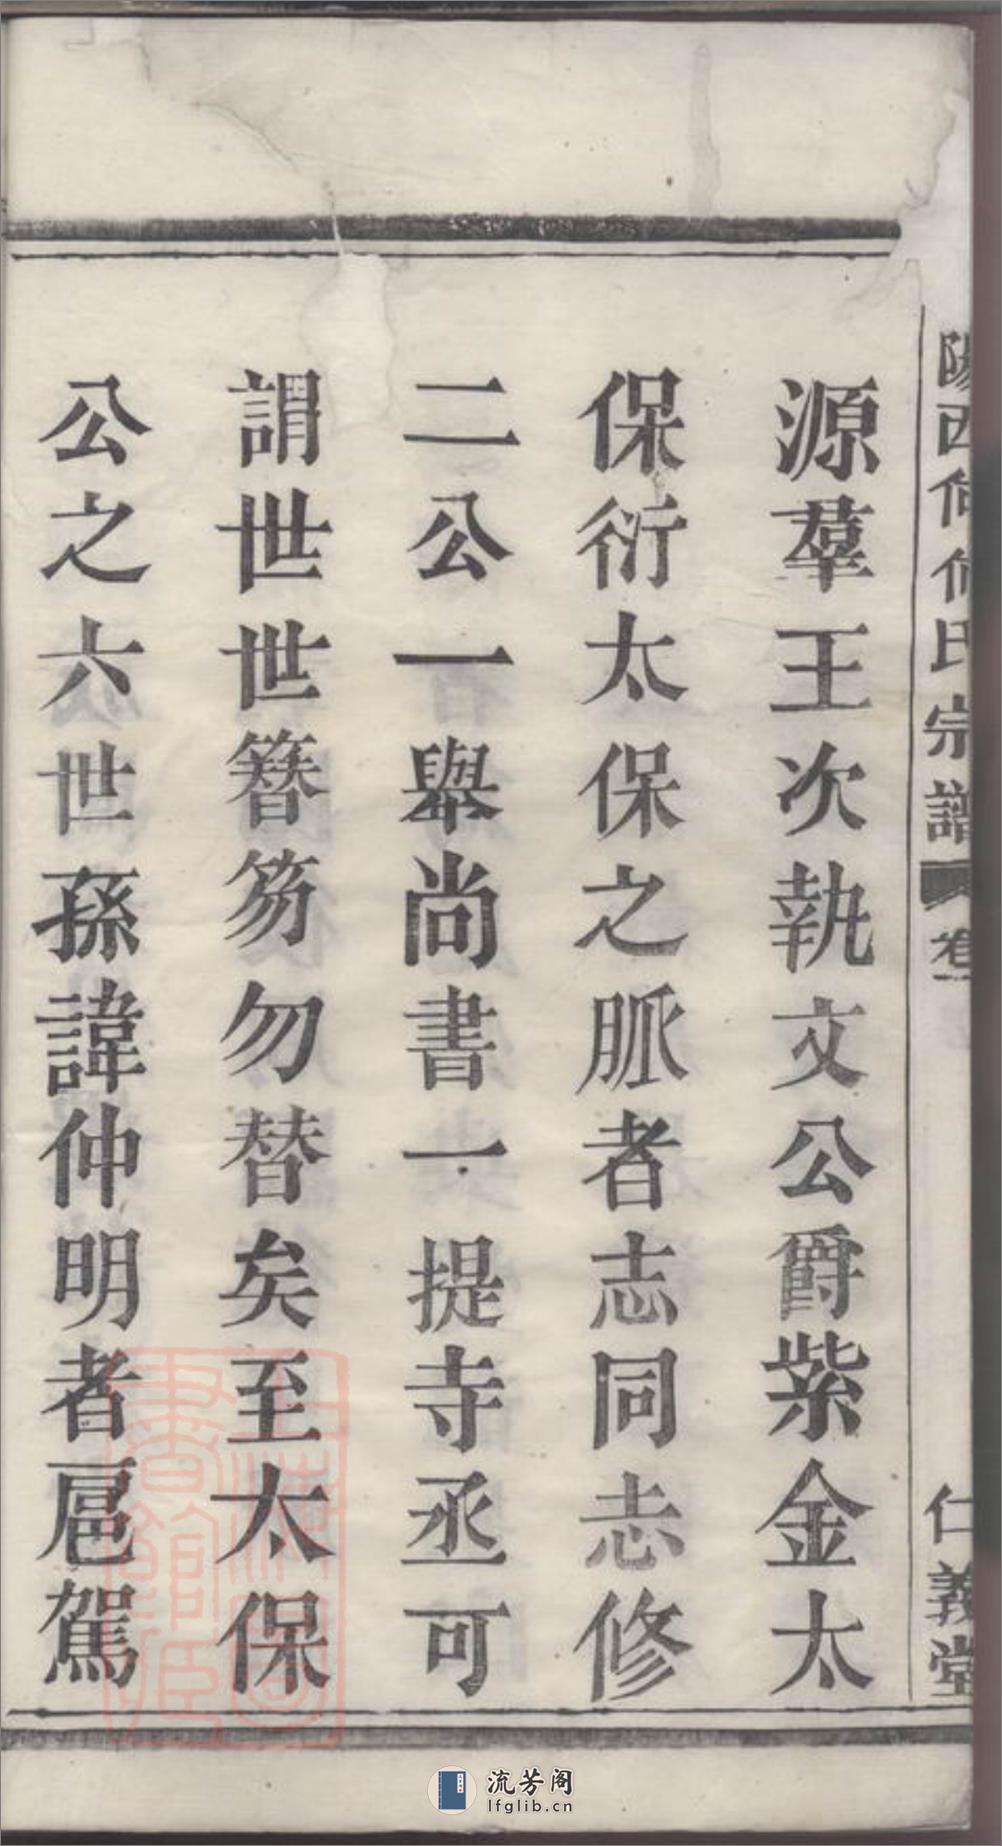 陽西何何氏宗譜 卷
仁義堂
源羣王次執文公爵紫金太
保衍太保之脈者志同志修
二公一舉尚書一提寺丞可
謂世世簪笏勿替矣至太保
公之六世孫諱仲明者扈駕
上海圖書館藏
流芳阁
lfglib.cn